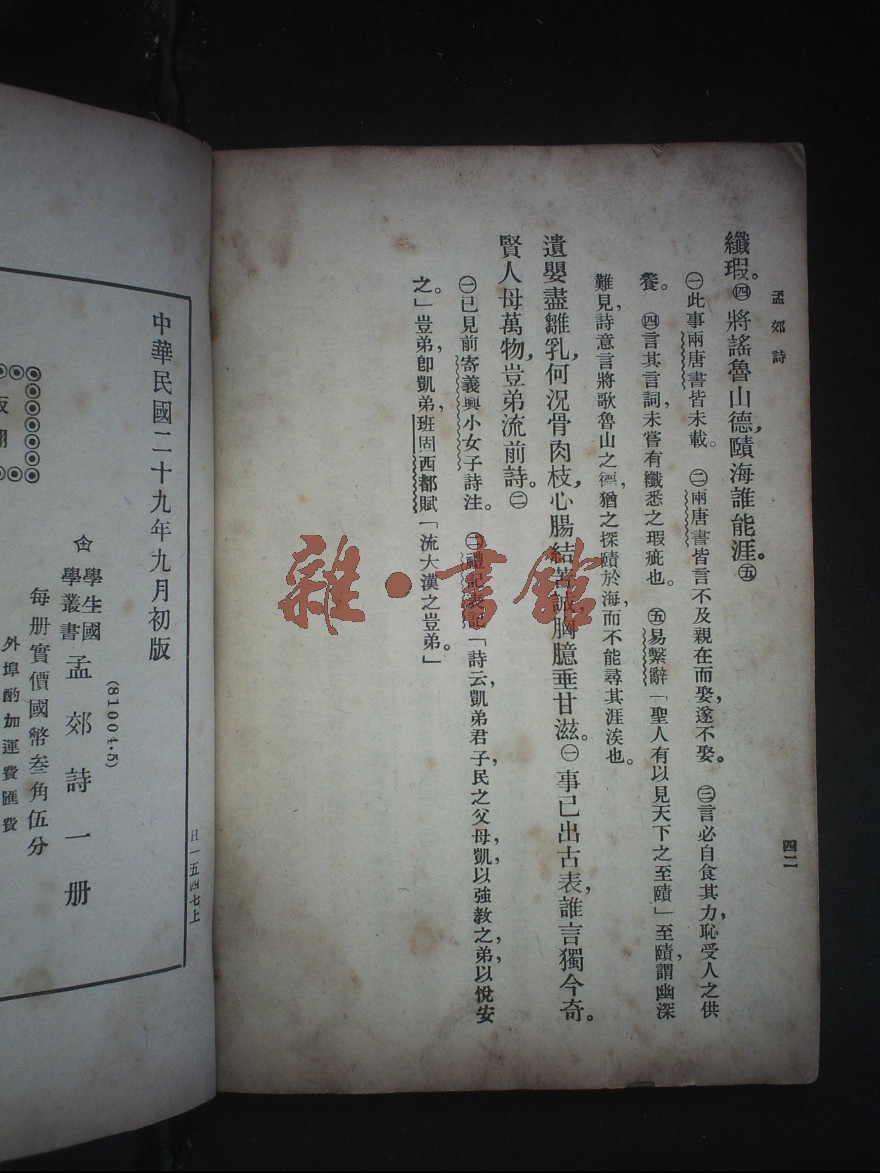 孟郊詩
四二
纖瑕。㊃將謠魯山德，賾海誰能涯。㊄
㊀此事兩唐書皆未載。㊁兩唐書皆言不及親在而娶，遂不娶。㊂言必自食其力，恥受人之供
餮。㊃言其言詞，未嘗有纖悉之瑕疵也。㊄易繫辭「聖人有以見天下之至賾」至賾謂幽深
難見，詩意言將歌魯山之德，猶之探賾於海而不能尋其涯涘也。
遺嬰盡雛乳，何況骨肉枝，心腸結苦誠，胸臆垂甘滋。㊀事已出古表，誰言獨今奇。
賢人母萬物，豈弟流前詩。㊁
㊀已見前寄義興小女子詩注。㊁禮記表記「詩云，凱弟君子，民之父母，凱以強教之，弟以悅安
之。」豈弟即凱弟，班固西都賦「流大漢之豈弟。」
雜·書館
H一五四七上
(81004·5)
學生國學叢書 孟郊詩一册
每册實價國幣叁角伍分
外埠酌加運費匯費
中華民國二十九年九月初版